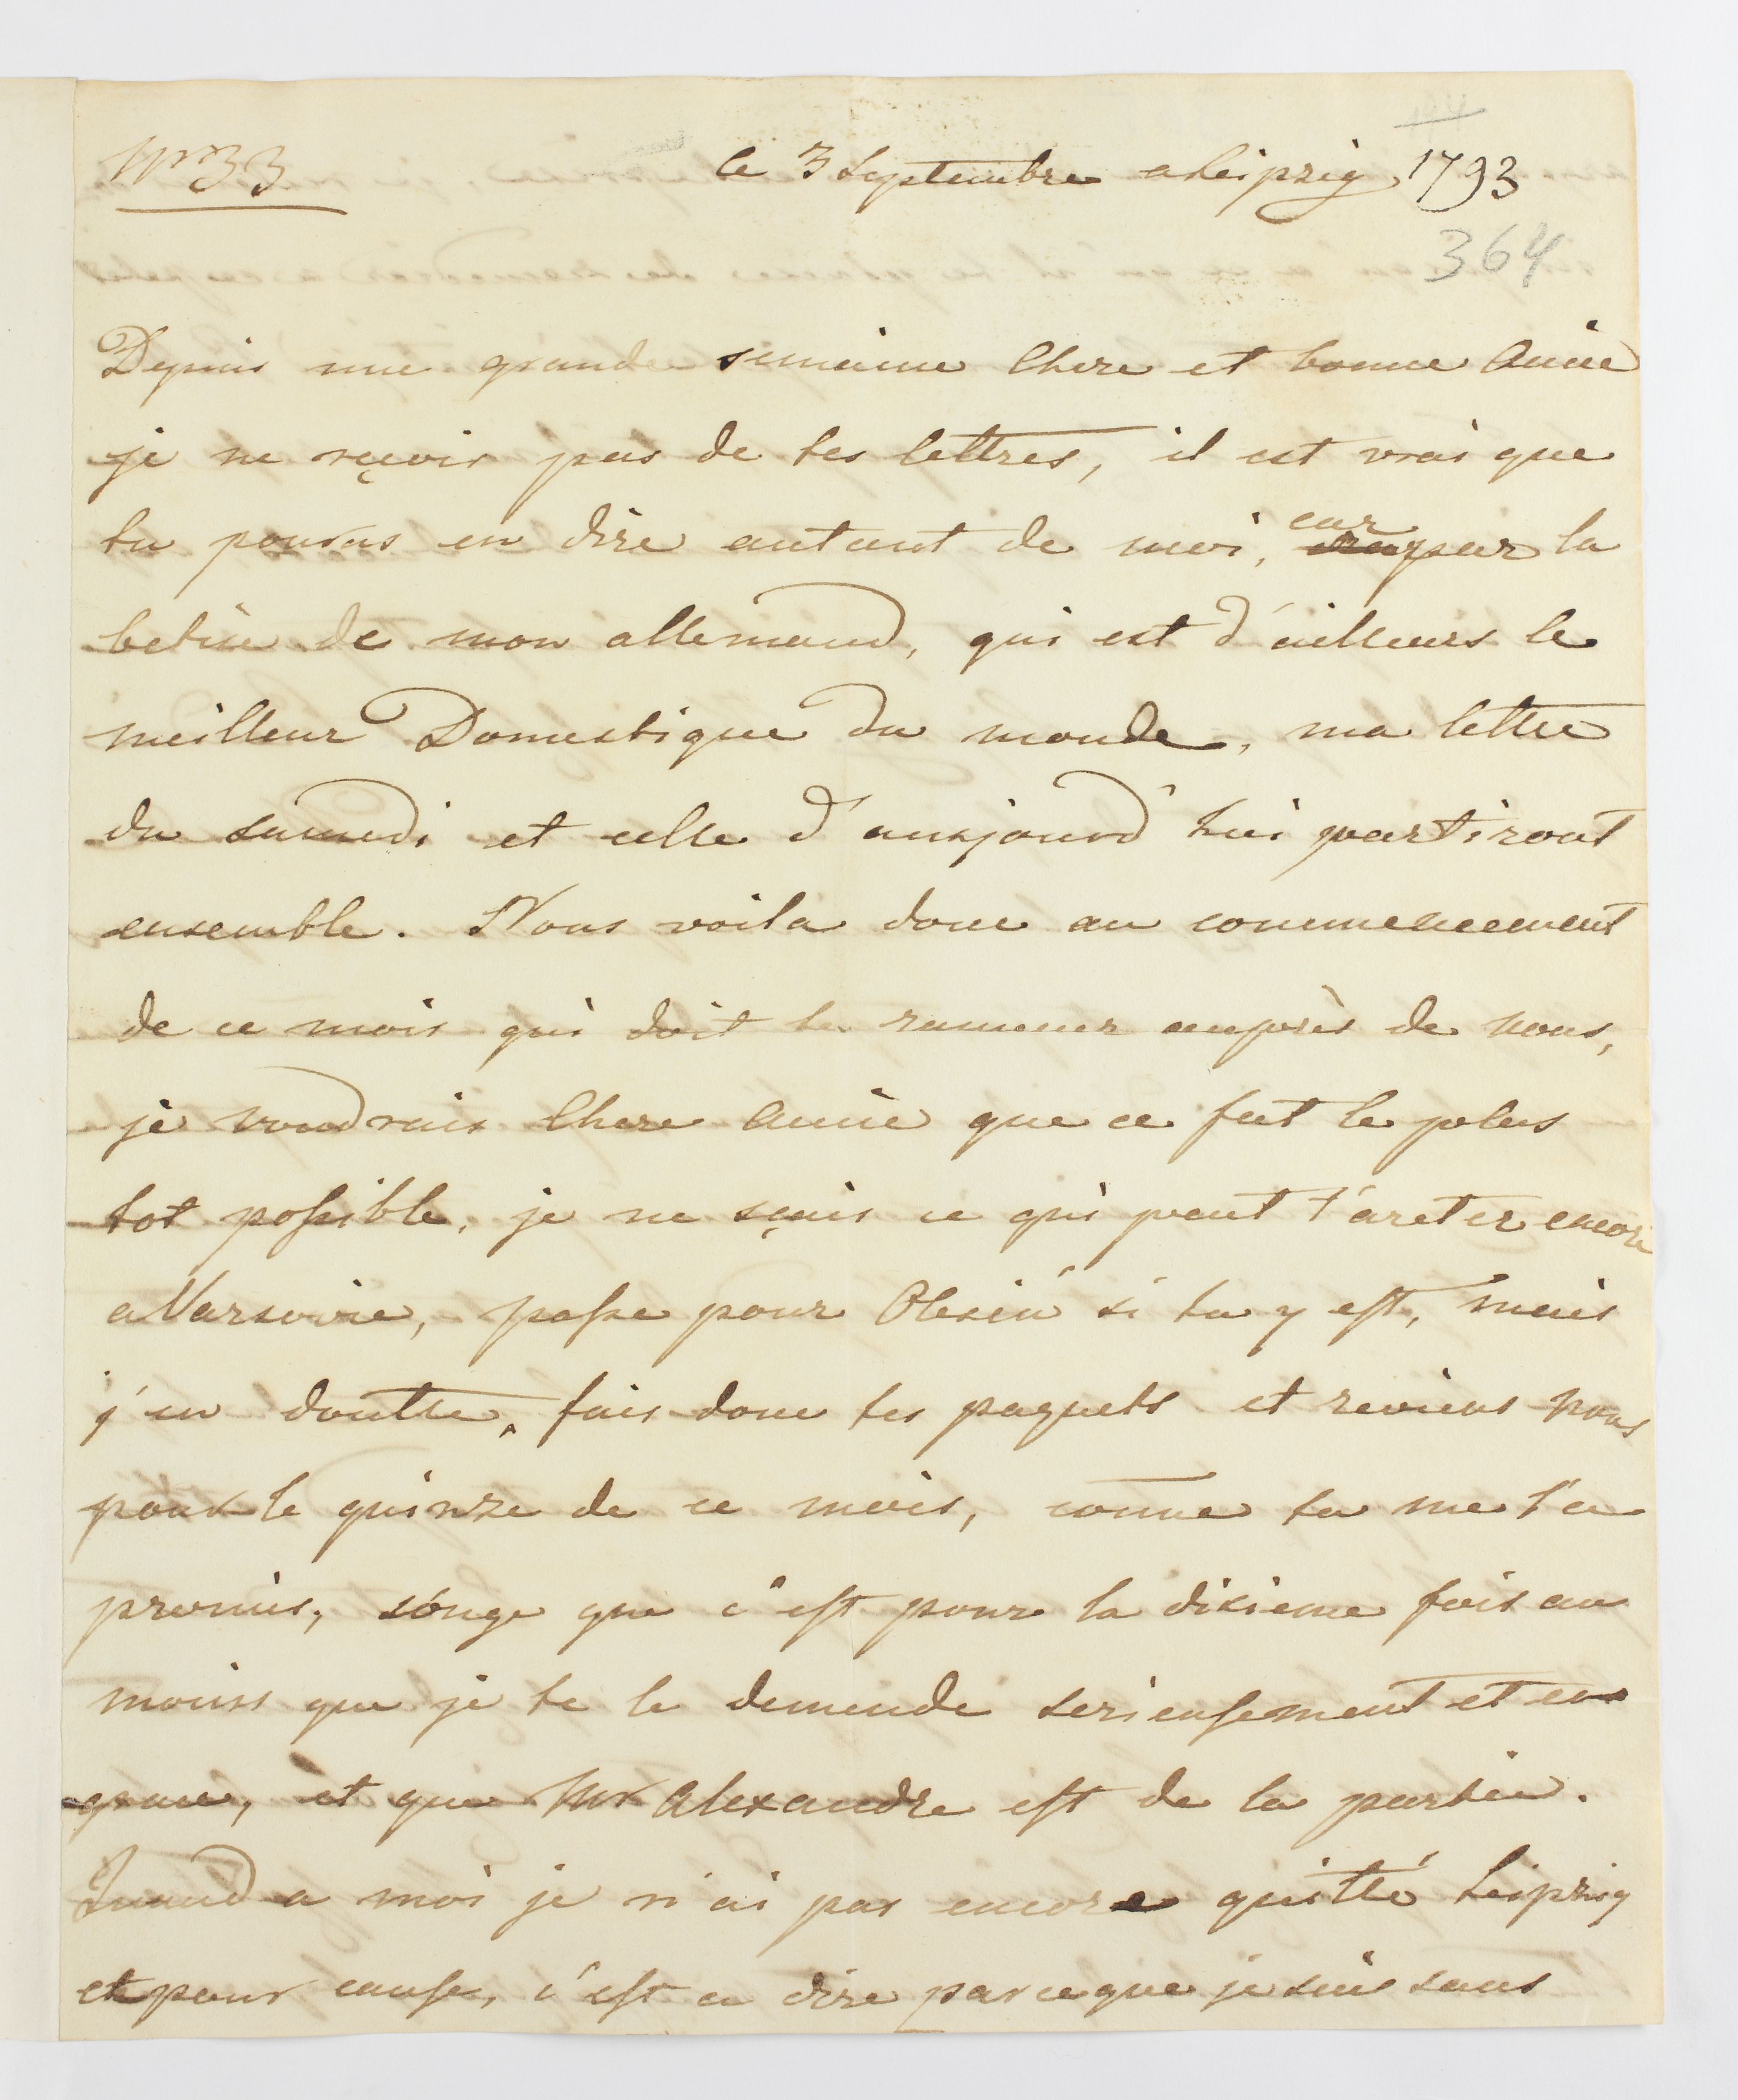 Nro 33
le 3 Septembre a Leipzig 1793
364
Depuis une grande semaine Chere et bonne Amie
je ne reçois pas de tes lettres, il est vrai que
tu pouras en dire autant de moi, car par la
betise de mon allemand, qui est d'ailleurs le
meilleur Domestique du monde, ma lettre
du samedi et celle d'aujourd'hui partiront
ensemble. Nous voila donc au commencement
de ce mois qui doit te ramener auprès de nous,
je voudrais Chere Amie que ce fut le plus
tot possible, je ne sçais ce qui peut t'areter encore
a Varsovie, passe pour Olesin si tu y est, mais
j'en doutte, fais donc tes paquets et reviens nous
pour le quinze de ce mois, comme tu me l'a
promis, songe que c'est pour la dixieme fois au
moins que je te le demende serieusement et en
grace, et que Mr Alexandre est de la partie.
Quand a moi je n'ai pas encore quitté Leipzig
et pour cause, c'est a dire parceque je suis sans